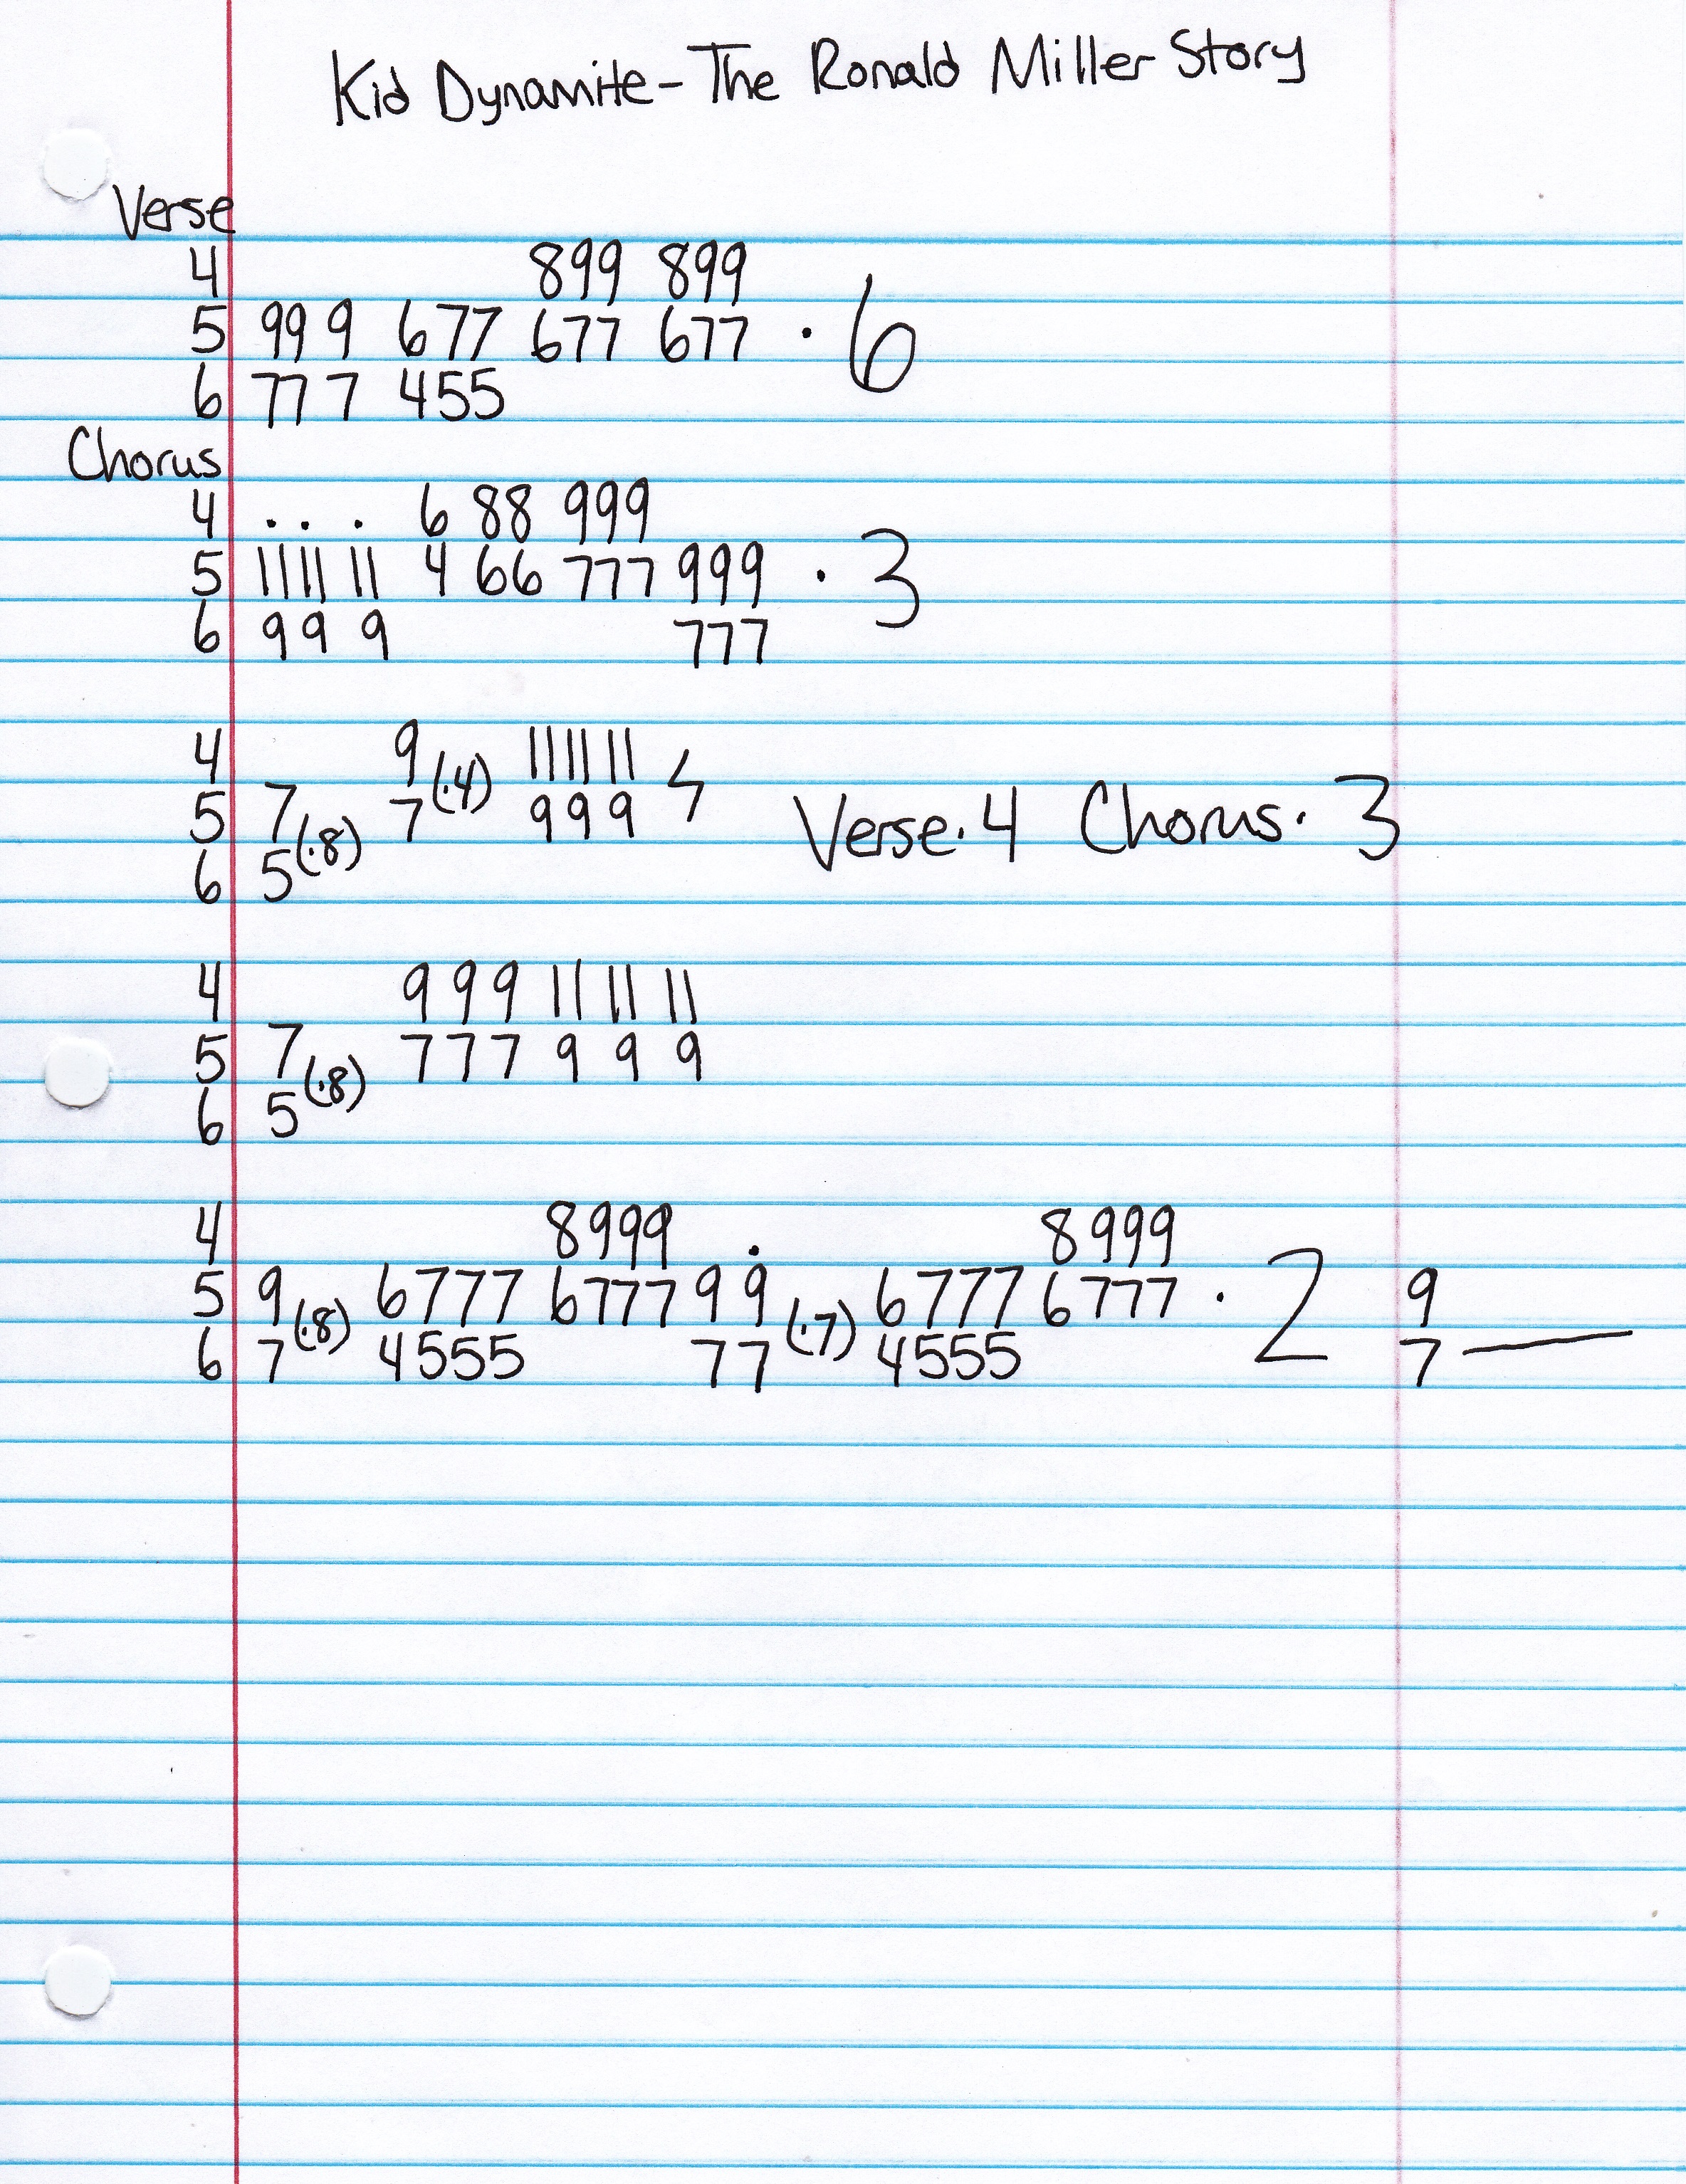 Kid Dynamite - The Ronald Miller Story
Verse
4 899 899
5 99 9 677 677 677 · 6
6 77 7 455
Chorus
4 . . . 6 88 999
5 11 11 11 4 66 777 999 · 3
6 9 9 9 777
4 9 (·4) 11 11 11
5 7 (·8) 7 9 9 9 Verse · 4 Chorus · 3
6 5
4 9 9 9 11 11 11
5 7 (·8) 7 7 7 9 9 9
6 5
4 8999 . 8999
5 9 (·8) 6777 6777 9 9 (·7) 6777 6777 · 2 9
6 7 4555 7 7 4555 7 —